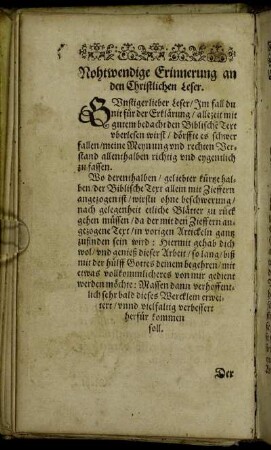 Nohtwendige Erinnerung an
den Christlichen Leser.
GUnstiger lieber Leser / Im fall du
nit für der Erklärung / allezeit mit
gutem bedacht den Biblische Text
vberlesen wirst / dörffte es schwer
fallen / meine Meynung vnd rechten Ver-
stand allenthalben richtig vnd eygentlich
zu fassen.
Wo derenthalben / geliebter kürtze hal-
ben / der Biblische Text allein mit Zieffern
angezogen ist / wirstu ohne beschwerung /
nach gelegenheit etliche Blätter zu rück
gehen müssen / da der mit den Zieffern an-
gezogene Text / in vorigen Articuln gantz
zufinden sein wird: Hiermit gehab dich
wol / vnd genieß dieser Arbeit / so lang / biß
mit der hülff Gottes deinem begehren / mit
etwas vollkommlicheres von mir gedient
werden möchte: Massen dann verhoffent-
lich sehr bald dieses Wercklein erwei-
tert / vnnd vielfaltig verbessert
herfür kommen
soll.
Der